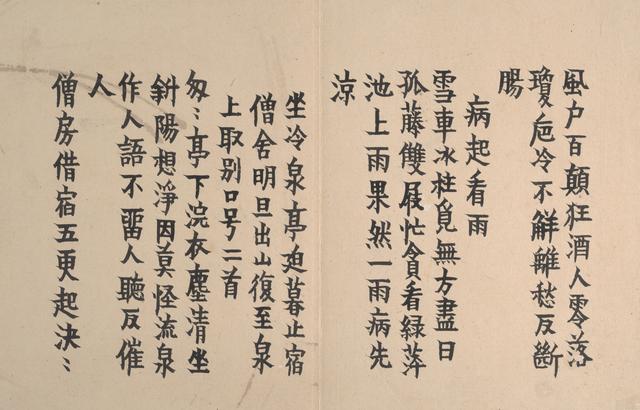 風户百顛狂酒人零落
瓊卮冷不解離愁反斷
腸
病起看雨
雪車冰柱覓無方盡日
孤藤雙屐忙貪看綠萍
池上雨果然一雨病先
涼
坐冷泉亭廹暮止宿
僧舍明旦出山復至泉
上取别口号二首
匆〻亭下浣衣塵清坐
斜陽想淨因莫怪流泉
作人語不畱人聽反催
人
僧房借宿五更起決〻